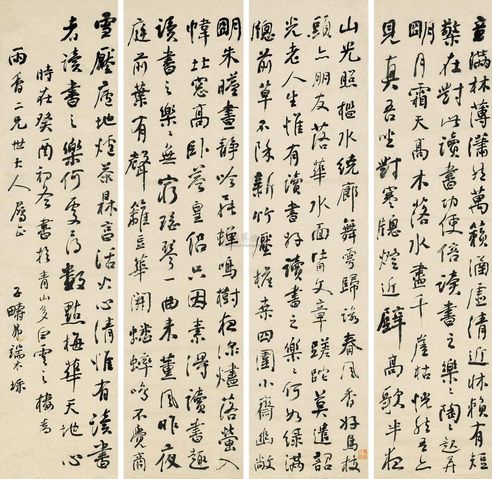 山光照檻水繞廊舞雩歸詠春風香好鳥枝
頭亦朋友落華水面皆文章蹉跎莫遣韶
光老人生惟有讀書好讀書之樂々何如綠滿
牕前草不除新竹壓檐桑四圍小齋幽敞
明朱曦晝靜吟罷蟬鳴樹夜深燼落螢入
幃北窗高臥羲皇侶只因素得讀書趣
讀書之樂々無窮瑤琴一曲來薰風昨夜
庭前葉有聲籬豆華開蟋蟀鳴不覺商
意滿林薄蕭然萬籟涵虛清賴有短
檠在對此讀書功便倍讀書之樂々陶々起弄
明月霜天高木落水盡千崖枯恍然吾亦
見真吾坐對寒牕燈近壁高歌半夜
雪壓廬地爐茶鼎烹活火心清惟有讀書
者讀書之樂何處尋數點梅華天地心
時在癸酉初冬書於青山多白雲之樓為
雨香二兄世大人屬正
子疇弟端木埰